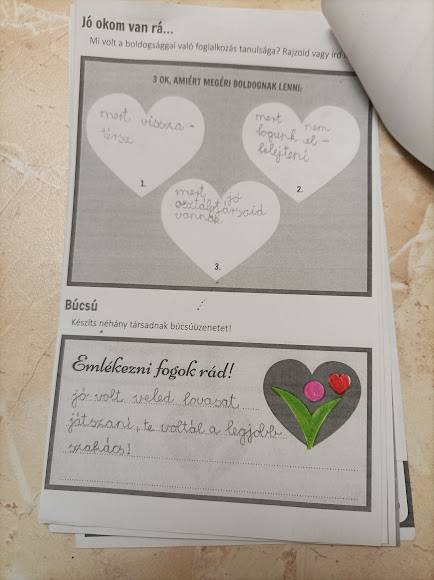 Jó okom van rá...
Mi volt a boldogsággal való foglalkozás tanulsága? Rajzold vagy írd
3 OK, AMIÉRT MEGÉRI BOLDOGNAK LENNI:
mert vissza-
térsz
1.
mert nem
fogunk el-
felejteni
2.
mert jó
osztálytársaid
vannak
3.
Búcsú
Készíts néhány társadnak búcsúüzenetet!
Emlékezni fogok rád!
jó volt veled lovasat
játszani, te voltál a legjobb
szakács!